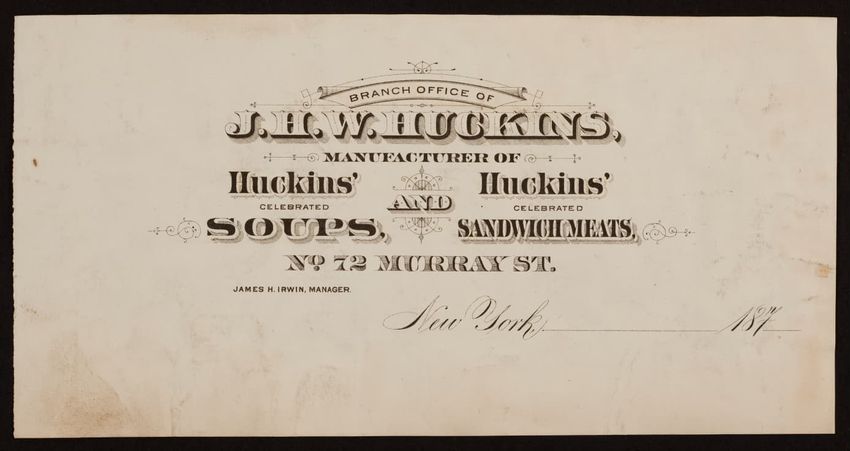 BRANCH OFFICE OF
J. H. W. HUCKINS,
MANUFACTURER OF
Huckins' Huckins'
CELEBRATED AND CELEBRATED
SOUPS, SANDWICH MEATS,
No. 72 MURRAY ST.
JAMES H. IRWIN, MANAGER.
New York, 187